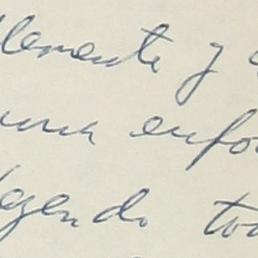 lemente y
una enfo
legendo to